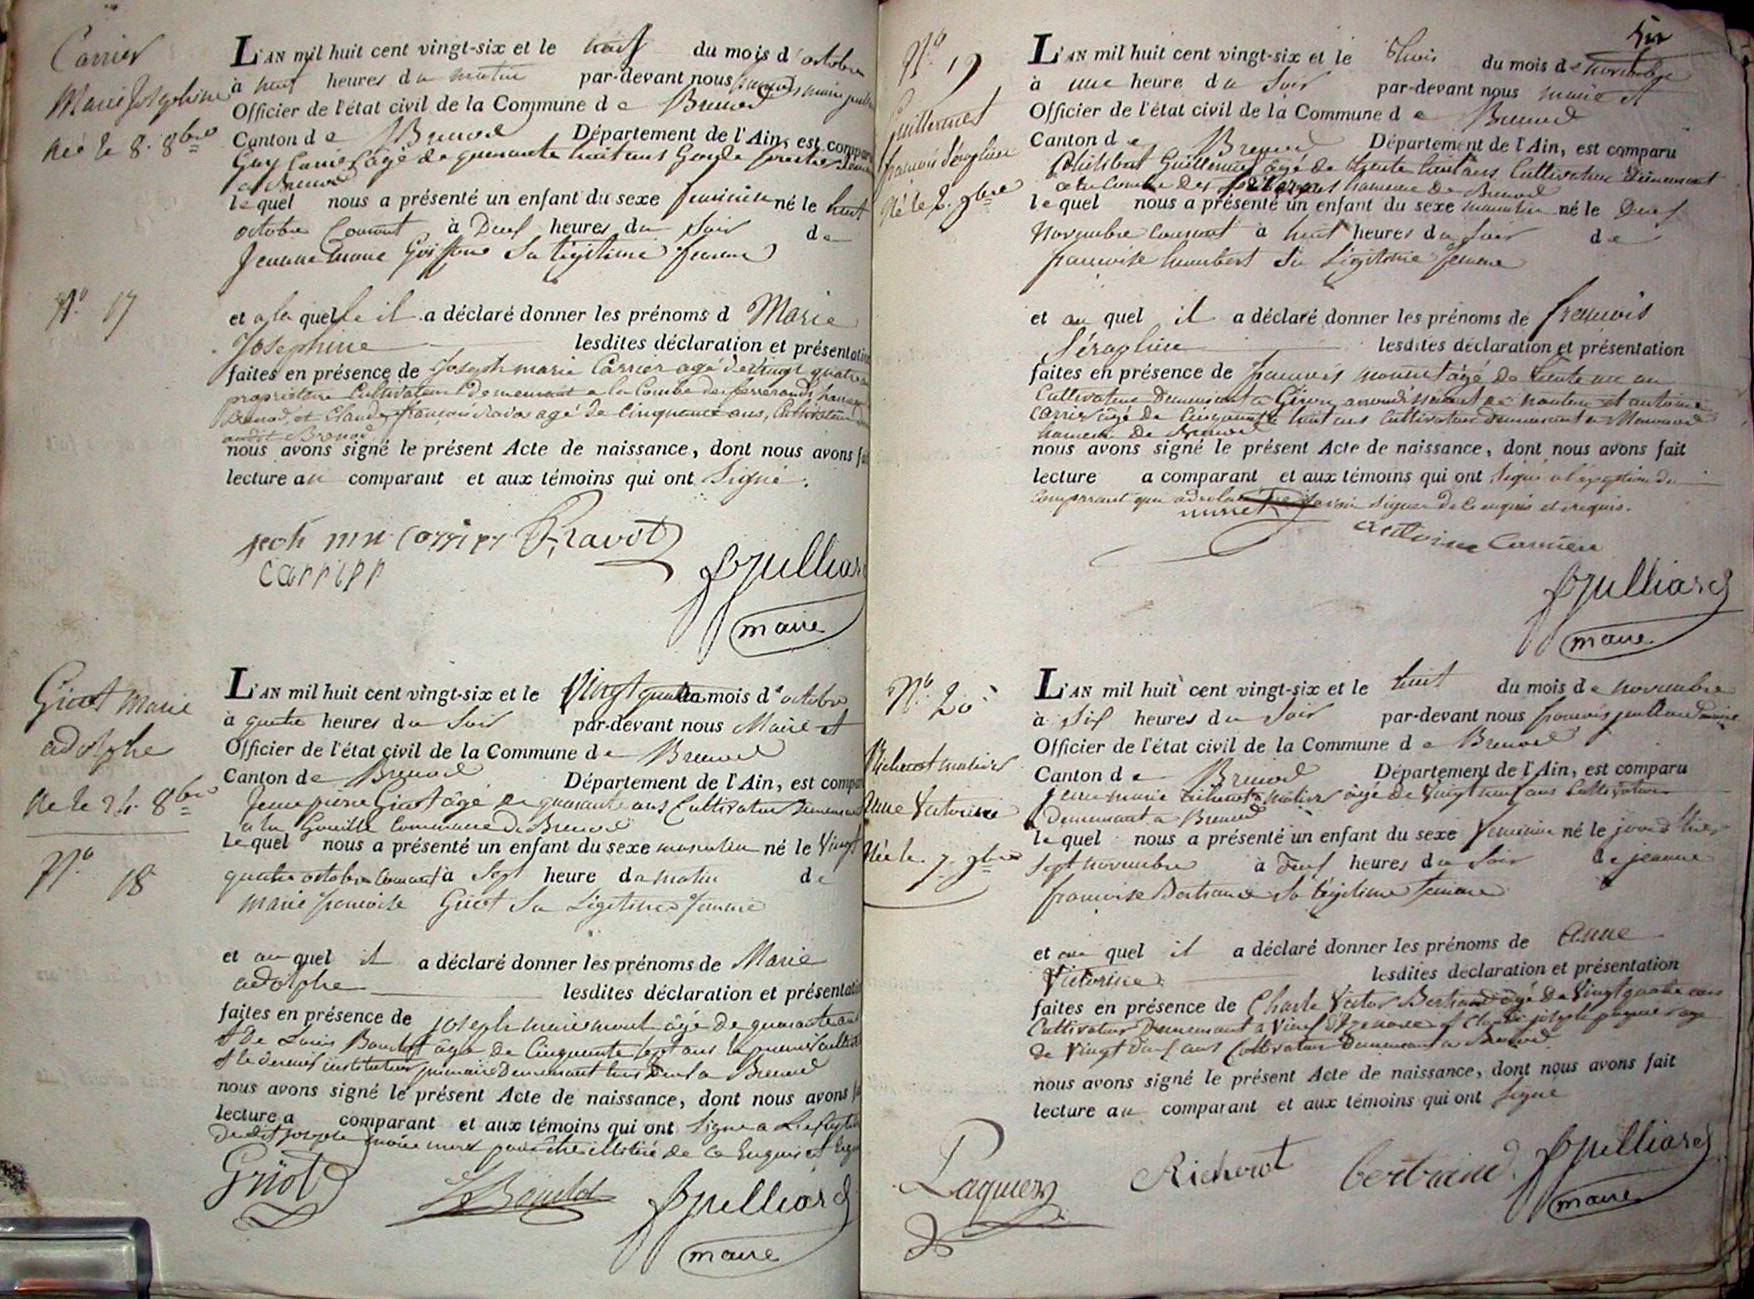 Carrier
Marie Josephine
née le 8. 8bre
N.o 17
L'AN mil huit cent vingt-six et le huit du mois d'octobre
à neuf heures du matin par-devant nous maire
Officier de l'état civil de la Commune de Brenod
Canton de Brenod Département de l'Ain, est comparu
Guy Carrier âgé de quarante huit ans Garde forestier
a Brenod
lequel nous a présenté un enfant du sexe feminin né le huit
octobre Courant à Deux heures du soir de
Jeanne marie Goiffon Sa légitime femme
et a la quelle il a déclaré donner les prénoms d Marie
Josephine lesdites déclaration et présentation
faites en présence de Joseph marie Carrier agé de vingt quatre
proprietaire Cultivateur demeurant a la Combe des ferrerands hameau
Brenod, et Claude françois Ravot agé de Cinquante ans, Cultivateur
audit Brenod
nous avons signé le présent Acte de naissance, dont nous avons fait
lecture au comparant et aux témoins qui ont Signé.
Ravot
carrier
Jpulliard
maire
Griot Marie
adolphe
Né le 24. 8bre
N.o 18
L'AN mil huit cent vingt-six et le Vingt quatre du mois d'octobre
à quatre heures du Soir par-devant nous Maire et
Officier de l'état civil de la Commune de Brenod
Canton de Brenod Département de l'Ain, est comparu
Jean pierre Griot âgé de quarante ans Cultivateur Demeurant
a la Gouille Commune de Brenod
Lequel nous a présenté un enfant du sexe masculin né le Vingt
quatre octobre Courant à Sept heure du matin de
Marie françoise Griot Sa Légitime femme
et au quel il a déclaré donner les prénoms de Marie
adolphe lesdites déclaration et présentation
faites en présence de Joseph marie âgé de quarante ans
et de Louis Baudot âgé de Cinquante sept ans le premier cultivateur
et le dernier instituteur primaire Demeurant tous Deux a Brenod
nous avons signé le présent Acte de naissance, dont nous avons fait
lecture a comparant et aux témoins qui ont Signé a L'exception
de dit Joseph marie pour être illitéré de Ce Enquis et Requis
Griot
Baudot
Jpulliard
maire
N.o 19
Guillermet
françois Séraphin
Né le 2. 9bre
L'AN mil huit cent vingt-six et le Trois du mois de novembre
à une heure du Soir par-devant nous maire et
Officier de l'état civil de la Commune de Brenod
Canton de Brenod Département de l'Ain, est comparu
Philibert Guillermet âgé de trente huit ans Cultivateur Demeurant
a la Combe des hameau de Brenod
lequel nous a présenté un enfant du sexe masculin né le Deux
Novembre courant à huit heures du Soir de
françoise humbert Sa Légitime femme
et au quel il a déclaré donner les prénoms de françois
Séraphin lesdites déclaration et présentation
faites en présence de françois monnet âgé de trente un an
Cultivateur Demeurant a Giron arrondissement de nantua et antoine
Carrier âgé de Cinquante huit ans Cultivateur Demeurant a
hameau de Brenod
nous avons signé le présent Acte de naissance, dont nous avons fait
lecture a comparant et aux témoins qui ont Signé a l'éxception du
Comparant qui a déclaré ne savoir signer de Ce enquis et requis.
antoine Carriere
Jpulliard
maire
N.o 20
Richerot matier
Anne Victorine
Née le 7. 9bre
L'AN mil huit cent vingt-six et le huit du mois de novembre
à Six heures du Soir par-devant nous françois pulliard maire
Officier de l'état civil de la Commune de Brenod
Canton de Brenod Département de l'Ain, est comparu
Jean marie Richerot matier âgé de Vingt neuf ans Cultivateur
demeurant a Brenod
lequel nous a présenté un enfant du sexe Feminin né le jour d'hier
Sept novembre à Deux heures du Soir de jeanne
françoise Bertrand Sa légitime femme
et au quel il a déclaré donner les prénoms de Anne
Victorine lesdites déclaration et présentation
faites en présence de Charle Victor Bertrand âgé De Vingt quatre ans
Cultivateur Demeurant a Vieux d'Izenave et Claude joseph paquier âgé
de Vingt Deux ans Cultivateur Demeurant a Brenod
nous avons signé le présent Acte de naissance, dont nous avons fait
lecture au comparant et aux témoins qui ont Signé
Paquier
Richerot
bertrand
Jpulliard
maire